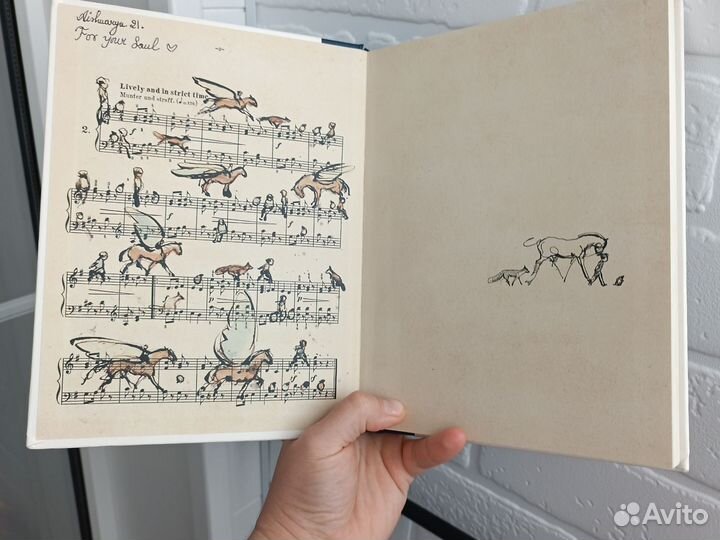 Aishwarya 21.
For your Saul ♡
Lively and in strict time
Munter und straff. (♩=126)
2.
Avito